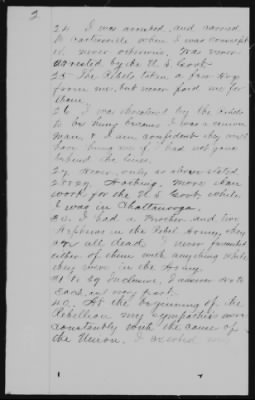 3
24. I was arrested, and carried
to Cartersville when I was conscript
ed, never otherwise. Was never
arrested by the U.S. Govt.
25. The Rebels taken a few hogs
from me, but never paid me for
them.
26. I was threatened by the Rebels
to be hung because I was a union
man, & I am confident they would
have hung me if I had not gone
behind the lines.
27. Never, only as above stated
28 & 29. Nothing, more than
work for the U.S. Govt. while
I was in Chattanooga.
30. I had a Brother and two
Nephews in the Rebel Army, they
are all dead. I never furnished
either of them with anything while
they were in the Army.
31 to 39 inclusive, I answer No to
Each, and every part.
40. At the beginning of the
Rebellion my sympathies were
constantly with the cause of
the Union. I exerted my